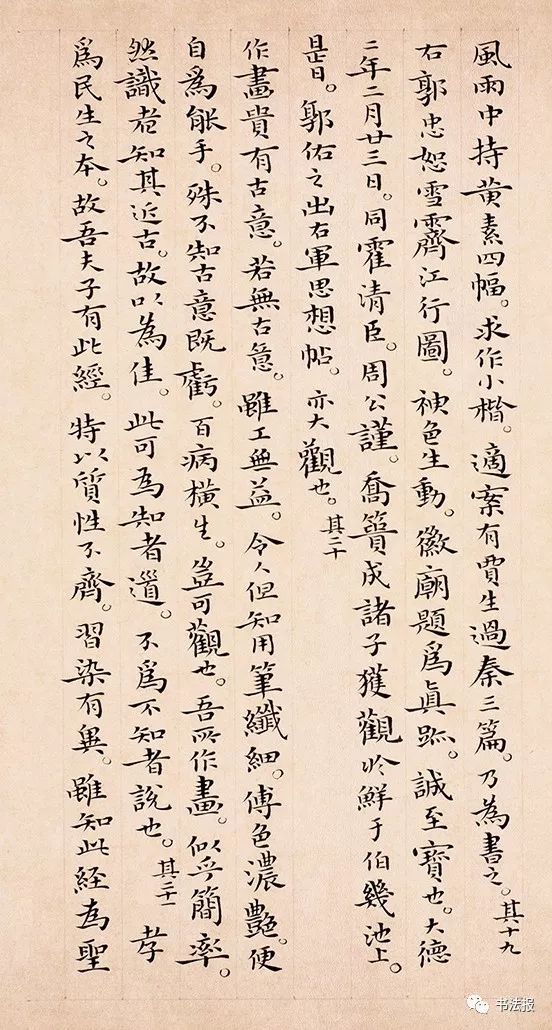 風雨中持黄素四幅。求作小楷。適案有賈生過秦三篇。乃為書之。其十九
右郭忠恕雪霽江行圖。神色生動。徽廟題爲真跡。誠至寶也。大德
二年二月廿三日。同霍清臣。周公謹。喬簣成諸子獲觀於鮮于伯幾池上。
是日。郭佑之出右軍思想帖。亦大觀也。其二十
作畫貴有古意。若無古意。雖工無益。今人但知用筆纖細。傅色濃艷。便
自為能手。殊不知古意既虧。百病横生。豈可觀也。吾所作畫。似乎簡率。
然識者知其近古。故以為佳。此可為知者道。不爲不知者說也。其二十一 孝
爲民生之本。故吾夫子有此經。特以質性不齊。習染有異。雖知此経為聖
书法报